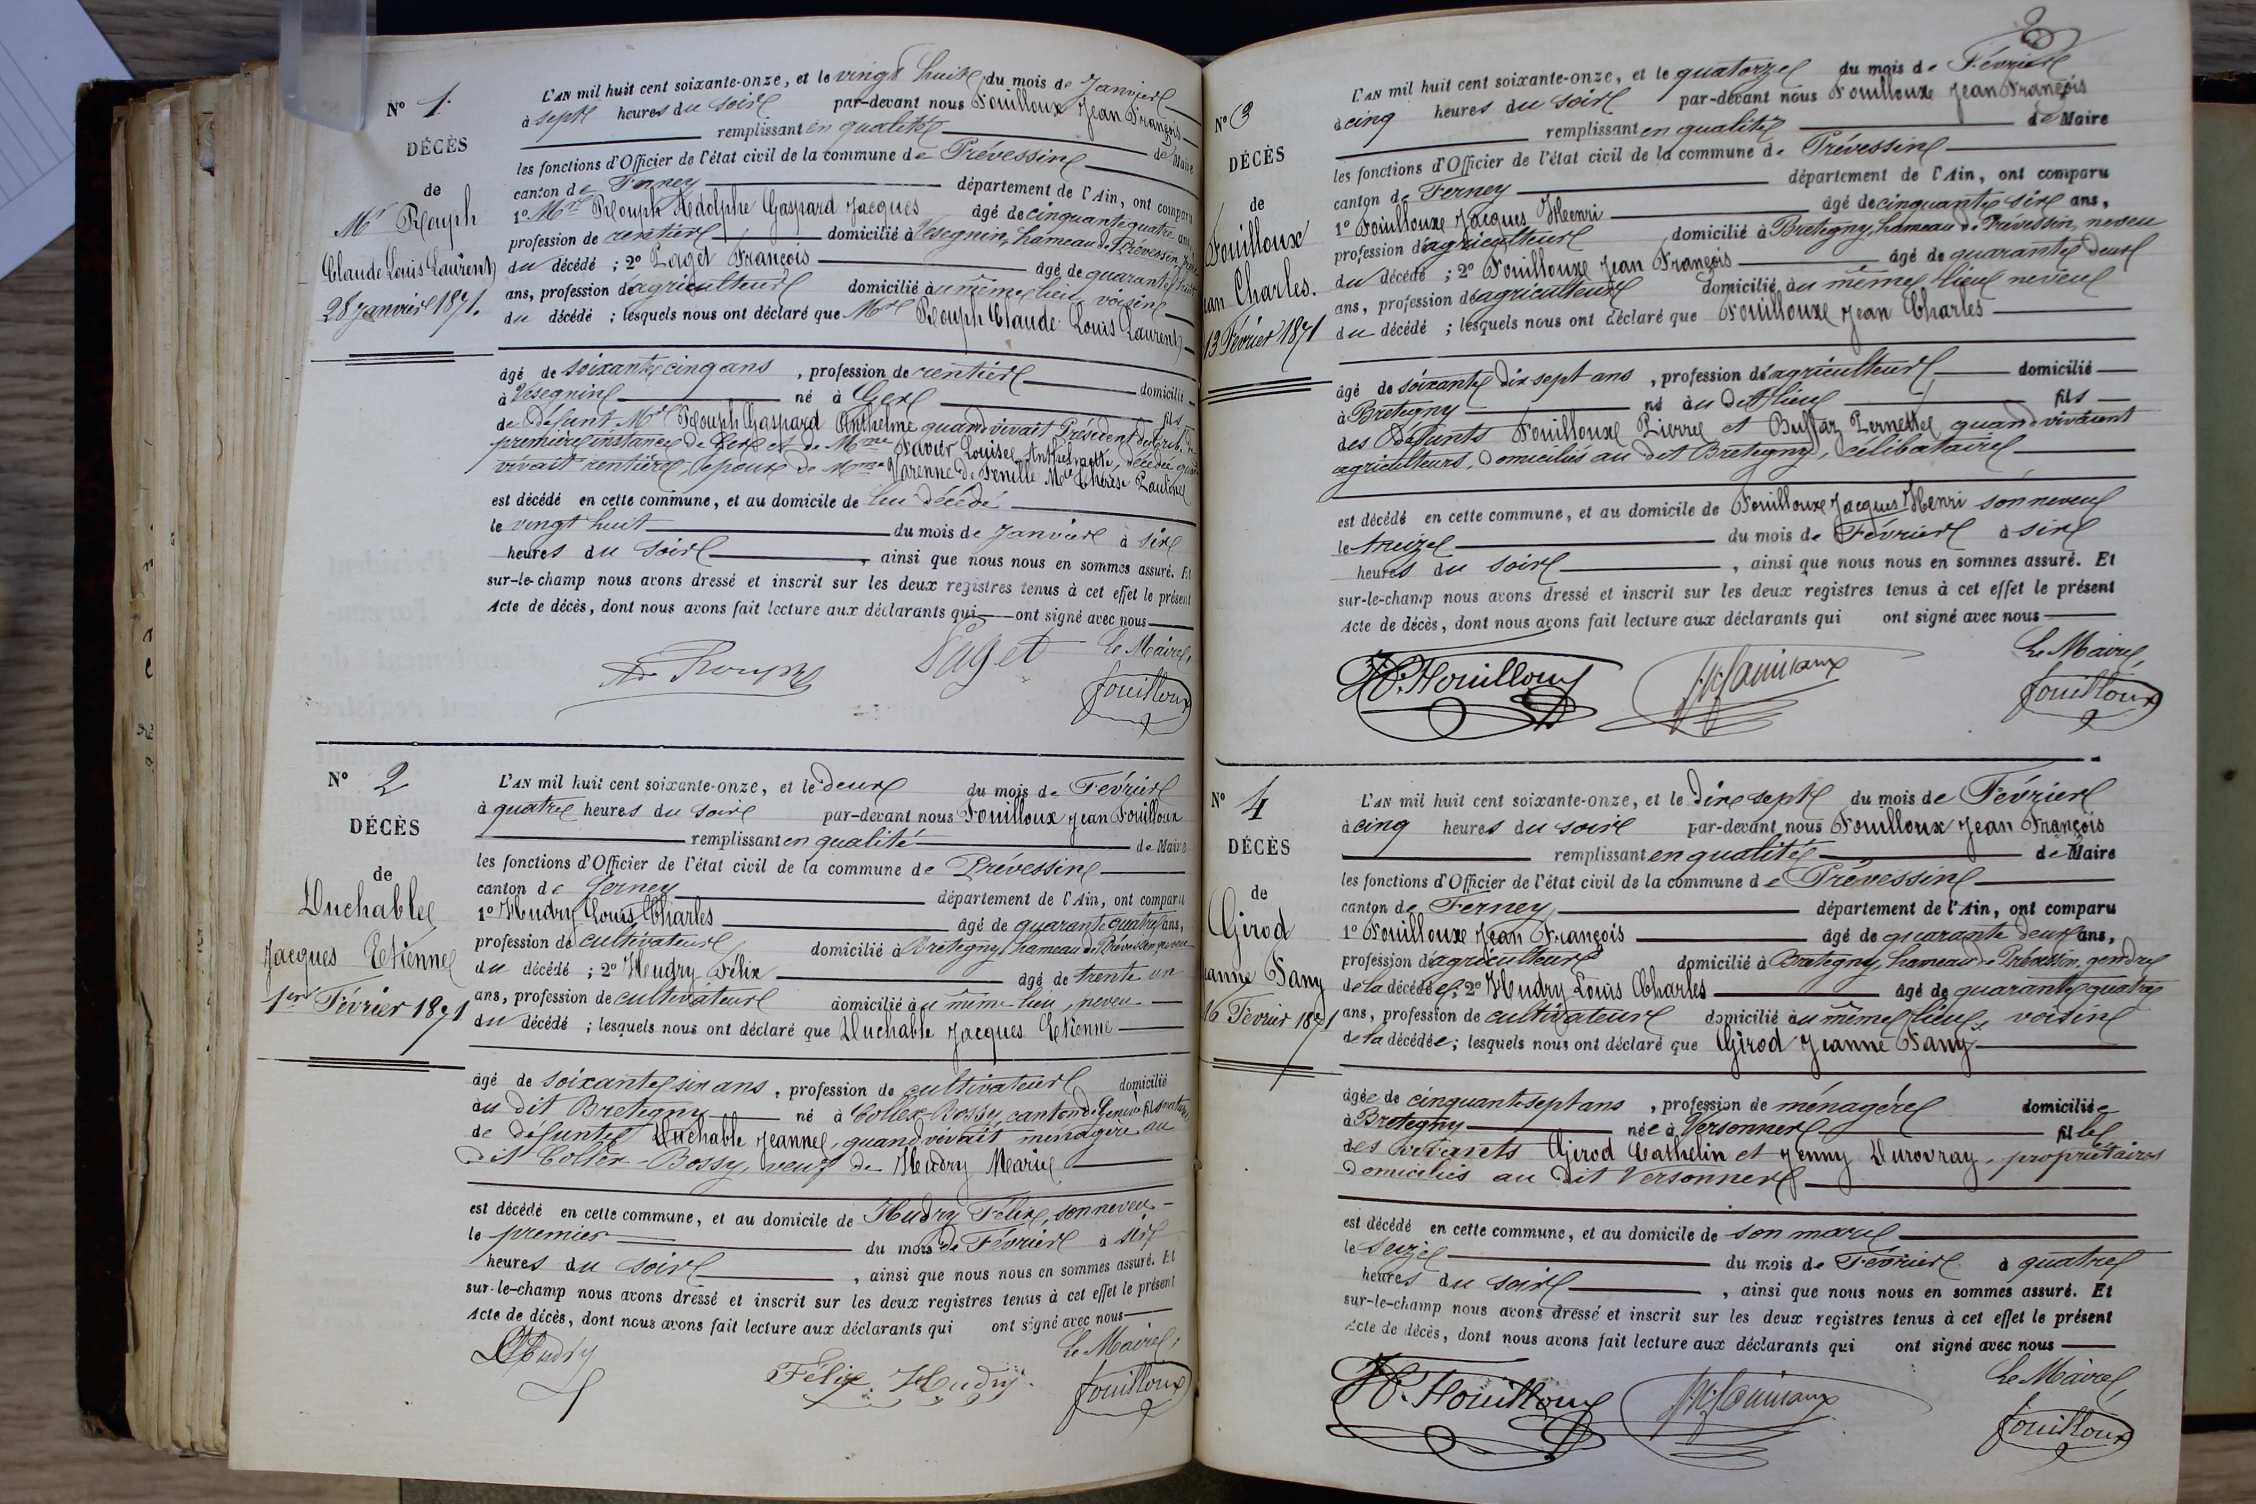 N° 1.
DÉCÈS
de
Mr Rouph
Claude Louis Laurent
28 Janvier 1871.
L'AN mil huit cent soixante-onze, et le vingt huit du mois de Janvier
à sept heures du soir par-devant nous Fouilloux Jean François
remplissant en qualité de Maire
les fonctions d'Officier de l'état civil de la commune de Prévessin
canton de Ferney département de l'Ain, ont comparu
1° Mr Rouph Adolphe Gaspard Jacques âgé de cinquante quatre ans,
profession de rentier domicilié à Vesegnin, hameau de Prévessin, frère
du décédé ; 2° Paget François âgé de quarante huit
ans, profession d'agriculteur domicilié au même lieu, voisin
du décédé ; lesquels nous ont déclaré que Mr Rouph Claude Louis Laurent
âgé de soixante cinq ans, profession de rentier domicilié
à Vesegnin né à Gex fils
de défunt Mr Rouph Gaspard Anthelme quand vivait Président du trib. de
première instance de Gex et de Mme Favier Louise, décédée quand
vivait rentière, époux de Mme Varenne de Fenille Mie Thérèse Pauline
est décédé en cette commune, et au domicile de lui décédé
le vingt huit du mois de Janvier à six
heures du soir, ainsi que nous nous en sommes assuré. Et
sur-le-champ nous avons dressé et inscrit sur les deux registres tenus à cet effet le présent
Acte de décès, dont nous avons fait lecture aux déclarants qui ont signé avec nous
Ad. Rouph Paget Le Maire,
fouilloux
N° 2
DÉCÈS
de
Duchable
Jacques Etienne
1er Février 1871
L'AN mil huit cent soixante-onze, et le deux du mois de Février
à quatre heures du soir par-devant nous Fouilloux Jean Fouilloux
remplissant en qualité de Maire
les fonctions d'Officier de l'état civil de la commune de Prévessin
canton de Ferney département de l'Ain, ont comparu
1° Hudry Louis Charles âgé de quarante quatre ans,
profession de cultivateur domicilié à Bretegny hameau de Prévessin, neveu
du décédé ; 2° Hudry Félix âgé de trente un
ans, profession de cultivateur domicilié au même lieu, neveu
du décédé ; lesquels nous ont déclaré que Duchable Jacques Etienne
âgé de soixante six ans, profession de cultivateur domicilié
au dit Bretegny né à Collex-Bossy, canton de Genève fils naturel
de défunte Duchable Jeanne, quand vivait ménagère au
dit Collex-Bossy, veuf de Hudry Marie
est décédé en cette commune, et au domicile de Hudry Félix, son neveu
le premier du mois de Février à six
heures du soir, ainsi que nous nous en sommes assuré. Et
sur-le-champ nous avons dressé et inscrit sur les deux registres tenus à cet effet le présent
Acte de décès, dont nous avons fait lecture aux déclarants qui ont signé avec nous
Hudry Félix Hudry. Le Maire,
fouilloux
N° 3
DÉCÈS
de
Fouilloux
Jean Charles.
13 Février 1871
L'AN mil huit cent soixante-onze, et le quatorze du mois de Février
à cinq heures du soir par-devant nous Fouilloux Jean François
remplissant en qualité de Maire
les fonctions d'Officier de l'état civil de la commune de Prévessin
canton de Ferney département de l'Ain, ont comparu
1° Fouilloux Jacques Henri âgé de cinquante six ans,
profession d'agriculteur domicilié à Bretegny, hameau de Prévessin, neveu
du décédé ; 2° Fouilloux Jean François âgé de quarante deux
ans, profession d'agriculteur domicilié au même lieu neveu
du décédé ; lesquels nous ont déclaré que Fouilloux Jean Charles
âgé de soixante dix sept ans, profession d'agriculteur domicilié
à Bretegny né au dit lieu fils
des défunts Fouilloux Pierre et Buffaz Pernette quand vivaient
agriculteurs, domiciliés au dit Bretegny, célibataire
est décédé en cette commune, et au domicile de Fouilloux Jacques Henri son neveu
le treize du mois de Février à six
heures du soir, ainsi que nous nous en sommes assuré. Et
sur-le-champ nous avons dressé et inscrit sur les deux registres tenus à cet effet le présent
Acte de décès, dont nous avons fait lecture aux déclarants qui ont signé avec nous
H. Fouilloux Le Maire,
fouilloux
N° 4
DÉCÈS
de
Girod
Jeanne Fany
16 Février 1871
L'AN mil huit cent soixante-onze, et le dix sept du mois de Février
à cinq heures du soir par-devant nous Fouilloux Jean François
remplissant en qualité de Maire
les fonctions d'Officier de l'état civil de la commune de Prévessin
canton de Ferney département de l'Ain, ont comparu
1° Fouilloux Jean François âgé de quarante deux ans,
profession d'agriculteur domicilié à Bretegny, hameau de Prévessin, gendre
de la décédée ; 2° Hudry Louis Charles âgé de quarante quatre
ans, profession de cultivateur domicilié au même lieu, voisin
de la décédée ; lesquels nous ont déclaré que Girod Jeanne Fany
âgée de cinquante sept ans, profession de ménagère domiciliée
à Bretegny née à Versonnex fille
des vivants Girod Cathelin et Jenny Durovray, propriétaires
domiciliés au dit Versonnex
est décédé en cette commune, et au domicile de son mari
le seize du mois de Février à quatre
heures du soir, ainsi que nous nous en sommes assuré. Et
sur-le-champ nous avons dressé et inscrit sur les deux registres tenus à cet effet le présent
Acte de décès, dont nous avons fait lecture aux déclarants qui ont signé avec nous
H. Fouilloux Le Maire,
fouilloux